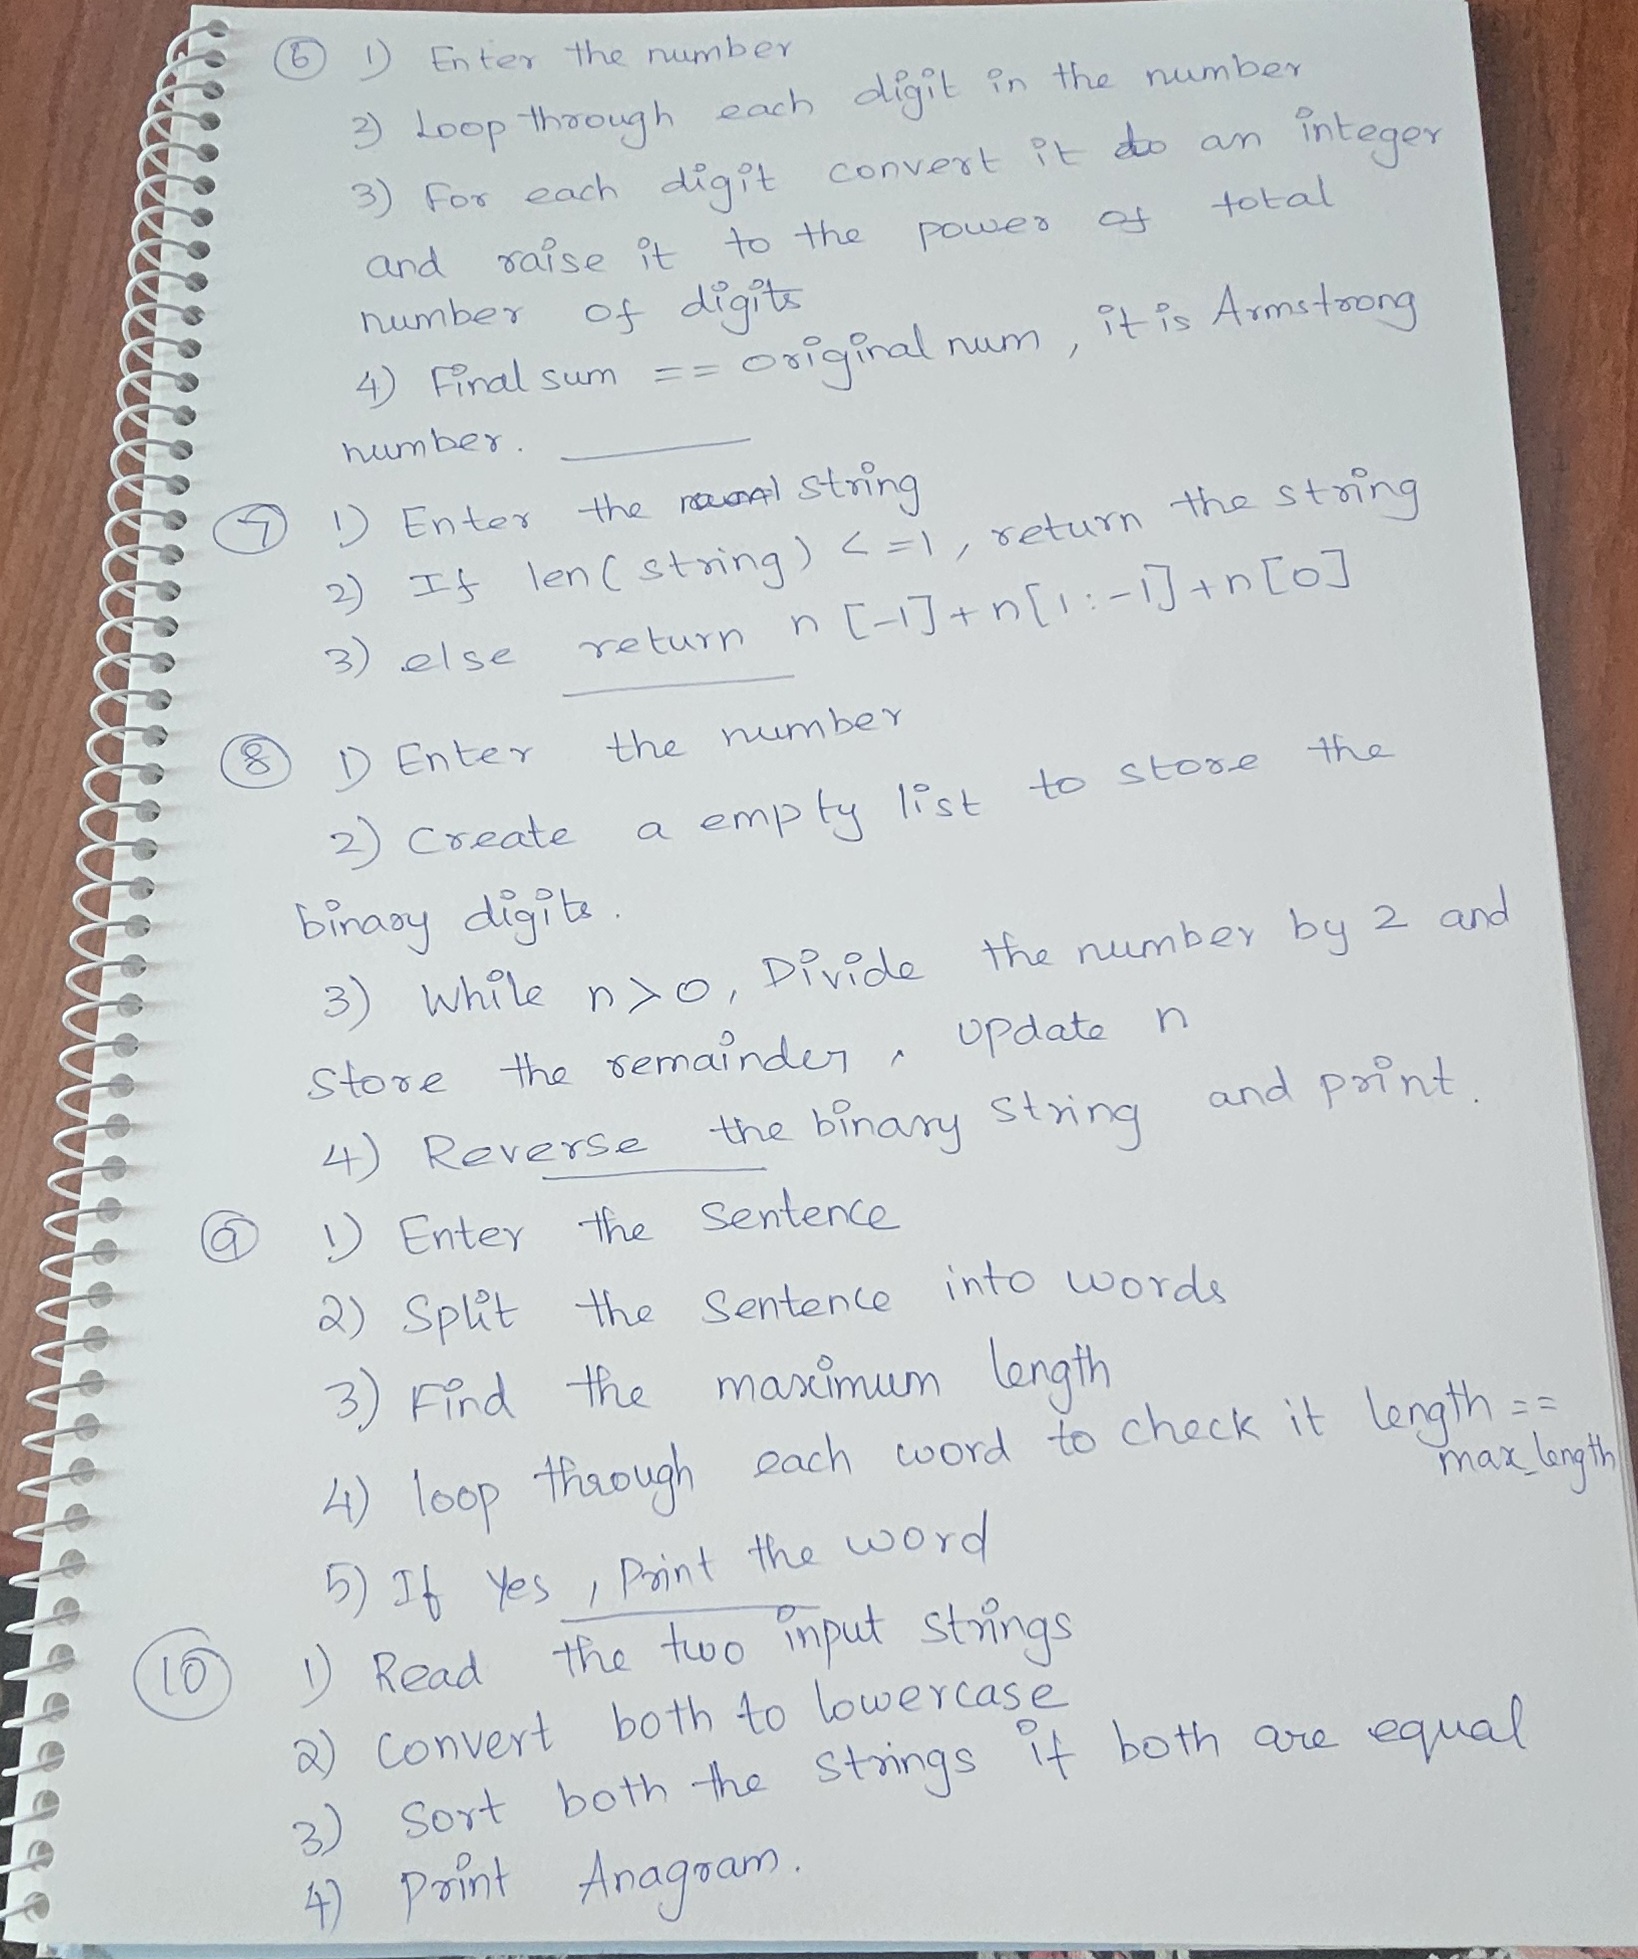 6 1) Enter the number
2) Loop through each digit in the number
3) For each digit convert it to an integer
and raise it to the power of total
number of digits
4) Final sum == original num, it is Armstrong
number.
7 1) Enter the string
2) If len(string) <=1, return the string
3) else return n[-1]+n[1:-1]+n[0]
8 1) Enter the number
2) Create a empty list to store the
binary digits.
3) While n>0, Divide the number by 2 and
store the remainder, update n
4) Reverse the binary string and print.
9 1) Enter the sentence
2) Split the sentence into words
3) Find the maximum length
4) loop through each word to check it length ==
max_length
5) If Yes, Print the word
10 1) Read the two input strings
2) Convert both to lowercase
3) Sort both the strings if both are equal
4) Print Anagram.